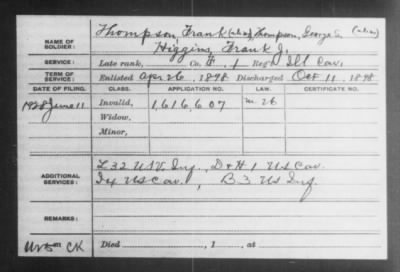 Thompson, Frank (alias) Thompson, George S. (alias)
NAME OF SOLDIER: Higgins, Frank J.
SERVICE: Late rank, Co. F, 1 Reg't Ill Cav.
TERM OF SERVICE: Enlisted Apr 26, 1898 Discharged Oct 11, 1898
DATE OF FILING. CLASS. APPLICATION NO. LAW. CERTIFICATE NO.
1928 June 11 Invalid, 1,616,607
Widow,
Minor,
ADDITIONAL SERVICES: L 32 USV. Inf., D & H 1 US Cav.
US Cav., B 3 US Inf.
REMARKS:
CK Died , 1 , at